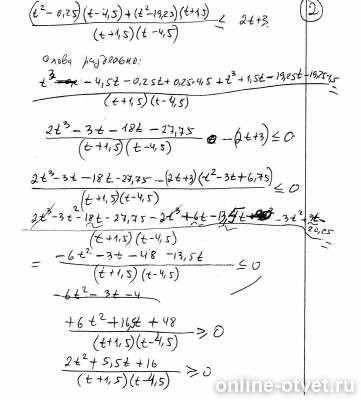 (t² - 0,25)(t-4,5) + (t² - 19,25)(t+1,5) / (t+1,5)(t-4,5) ≤ 2t+3
2
- 4,5t - 0,25t + 0,25·4,5 + t³ + 1,5t - 19,25t - 19,25·1,5 / (t+1,5)(t-4,5) =
2t³ - 3t - 18t - 27,75 / (t+1,5)(t-4,5) - (2t+3) ≤ 0
2t³ - 3t - 18t - 27,75 - (2t+3)(t² - 3t + 6,75) / (t+1,5)(t-4,5) ≤ 0
2t³ - 3t² - 18t - 27,75 - 2t³ + 6t - 13,5t - 3t² + / (t+1,5)(t-4,5) 20,25
= -6t² - 3t - 48 - 13,5t / (t+1,5)(t-4,5) ≤ 0
-6t² - 3t - 4
+6t² + 16,5t + 48 / (t+1,5)(t-4,5) ≥ 0
2t² + 5,5t + 16 / (t+1,5)(t-4,5) ≥ 0
online-otvet.ru